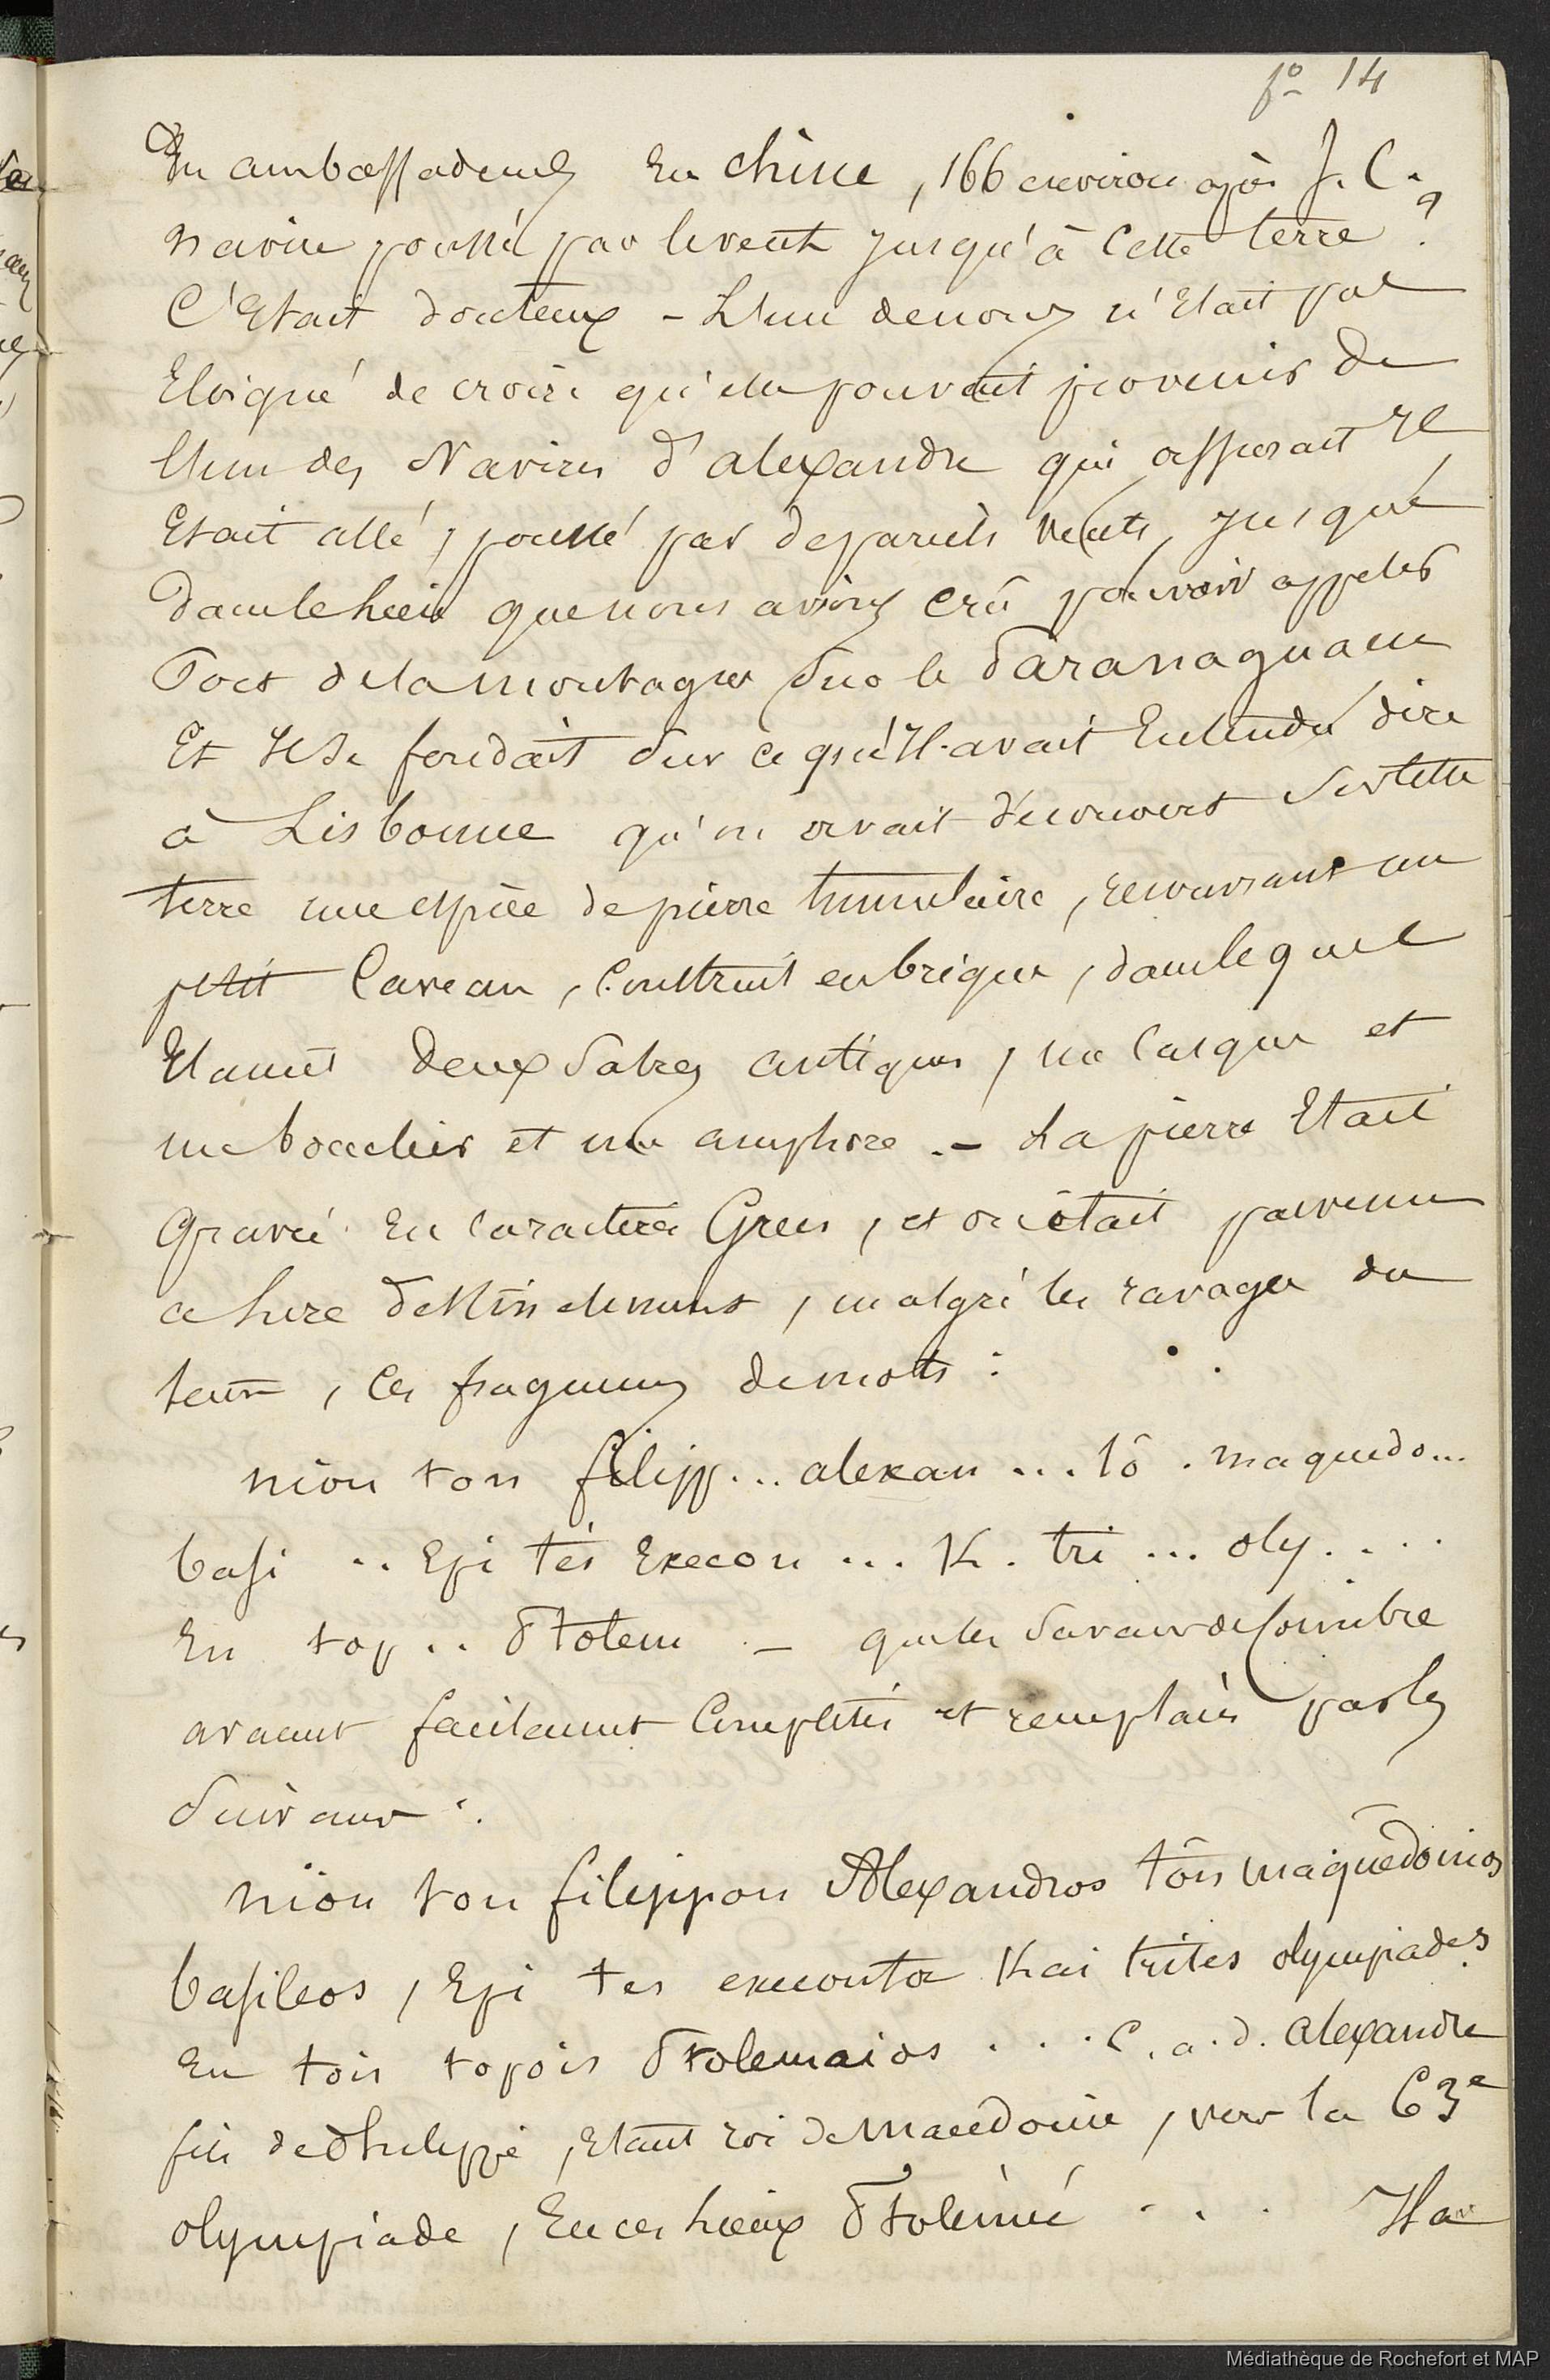 fo 14
Du ambassadeurs En chine, 166 environ après J. C.,
navire poussé par le vent jusqu'à Cette terre.
C'Etait douteux - L'un de nous n'Etait pas
Eloigné de croire qu'elle pouvait provenir de
l'un des Navires d'alexandre qui
Etait allé, poussé par de pareils vents, jusque
dans le lieu que nous avions crû pouvoir appeler
Port de la montagne sur le Paranaguam
Et Il se fondait sur ce qu'Il avait Entendu dire
à Lisbonne qu'on avait découvert sur cette
terre une espèce de pierre tumulaire, recouvrant un
petit Caveau, Construit en brique, dans lequel
Etaient deux Sabres antiques, un Casque et
un bouclier et une amphore. - La pierre Etait
Gravée En Caractères Grecs, et on était parvenu
a lire distinctement, malgré les ravages du
tems, Ces fragmens de mots :
nion ton filipp... alexan ... tô . maquedo...
basi .. Epi tés Execon ... K. tri ... oly....
En top .. Ptolem - que les Savans de Coimbre
avaient facilement Complétés et remplacés par les
Suivans :
nion ton filippon Alexandros tôn maquédonios
basileos, Epi tes execonta Kai trites olympiades
En tois topois Ptolemaios ... C. a. d. alexandre
fils de Philippe, Etant roi de Macédoine, vers la 63e
olympiade, En ces lieux Ptolémée ... Il a
Médiathèque de Rochefort et MAP